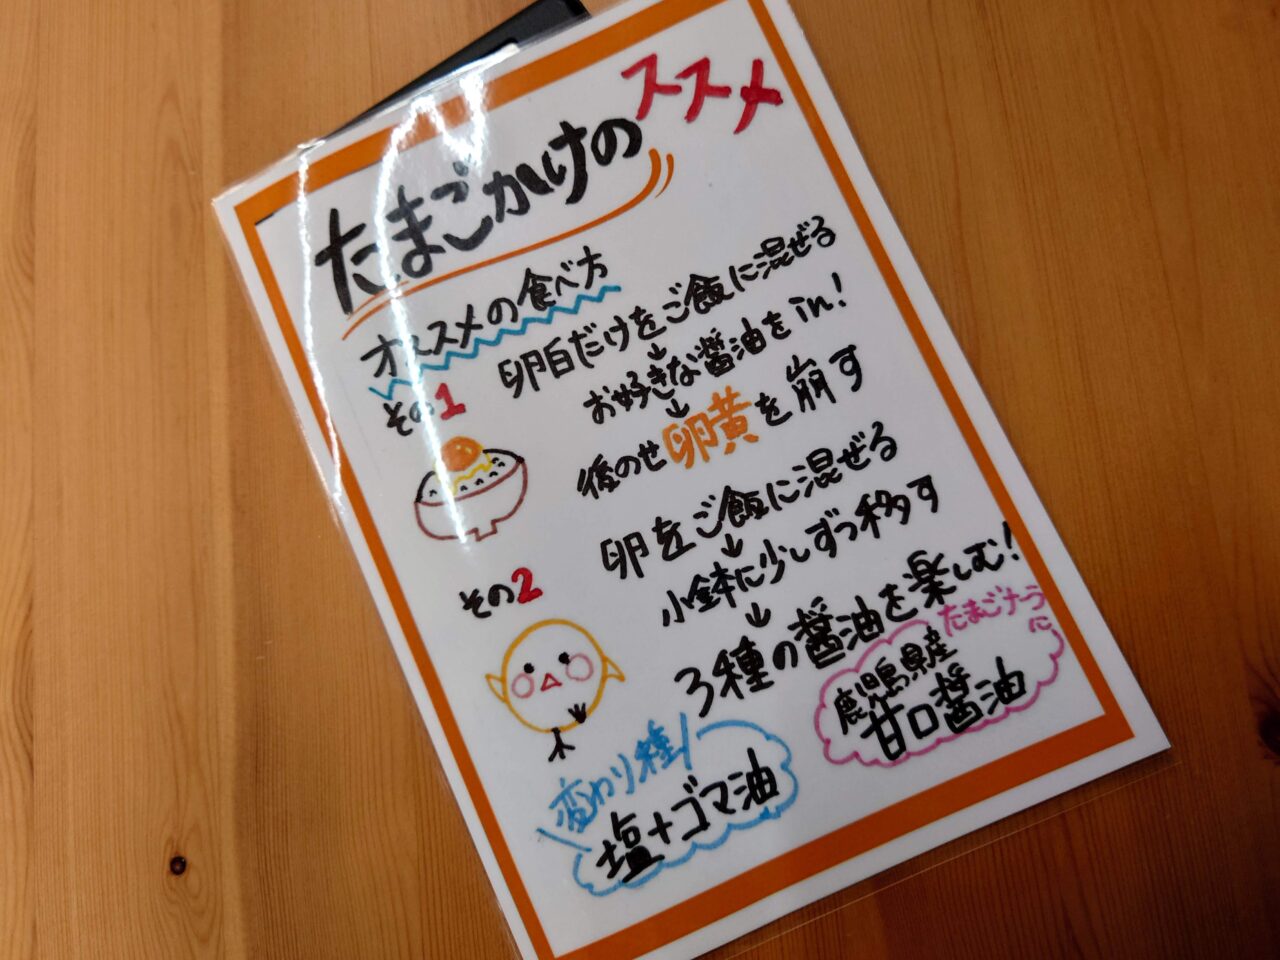 たまごかけのススメ
オススメの食べ方
その1
卵白だけをご飯に混ぜる
↓
お好きな醤油をin!
↓
後のせ卵黄を崩す
その2
卵をご飯に混ぜる
↓
小鉢に少しずつ移す
↓
3種の醤油を楽しむ!
変わり種
塩+ゴマ油
たまごナーラに
鹿児島県産
甘口醤油